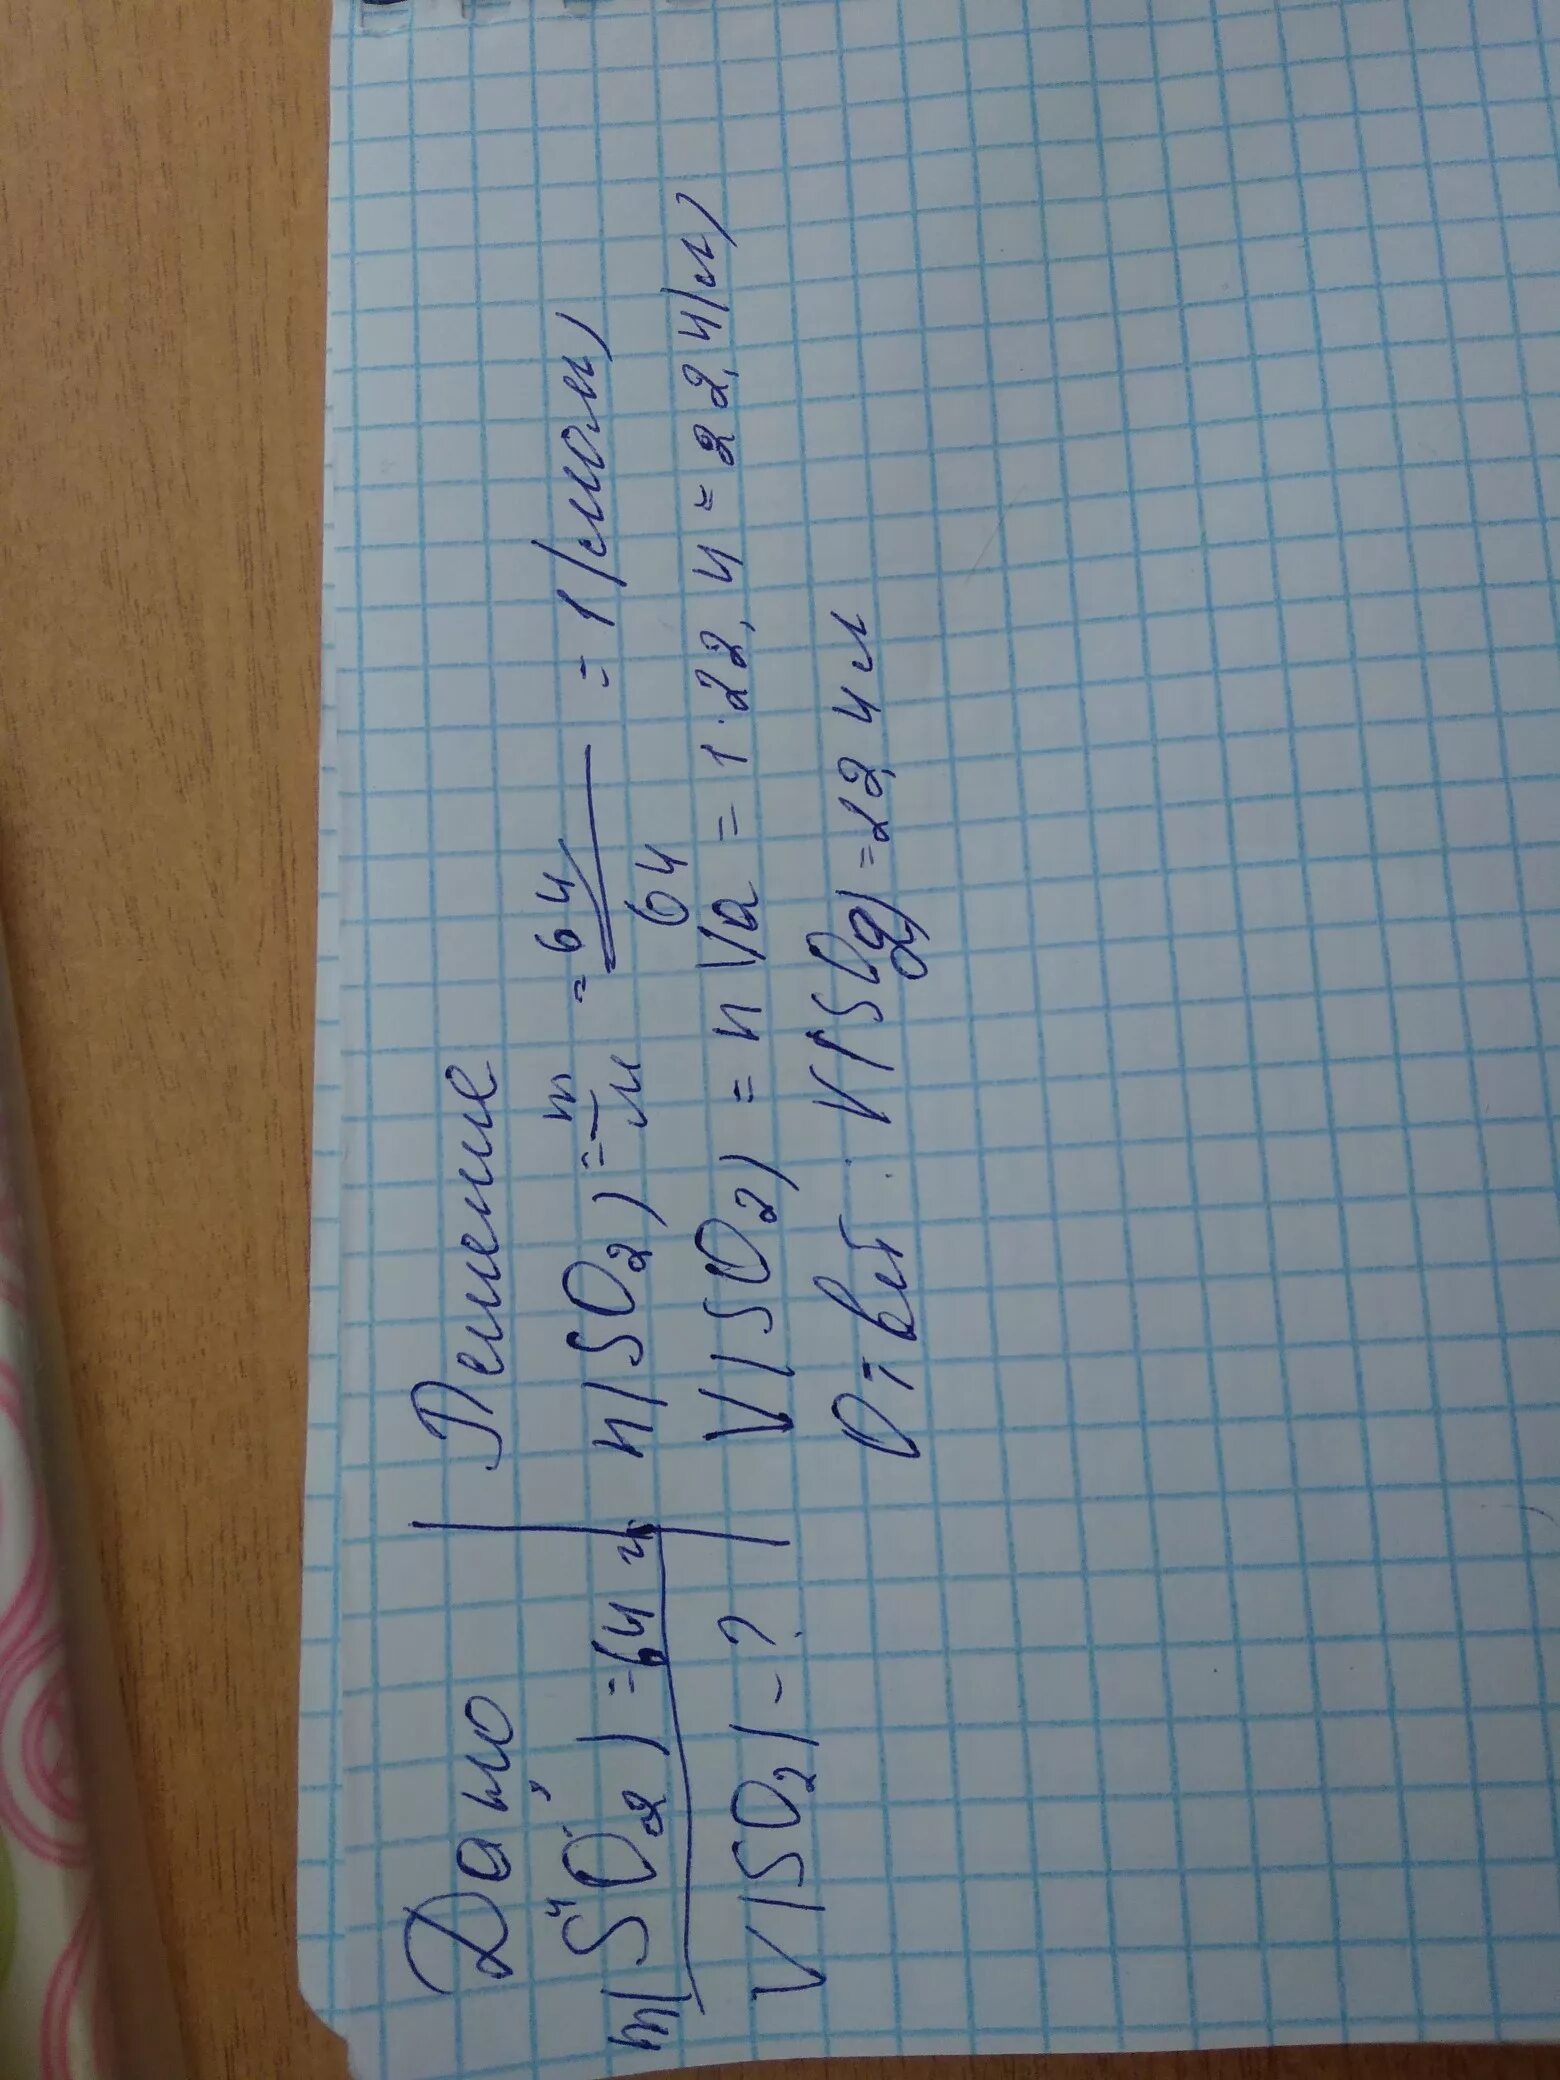 Дано
m(SO2) = 64 г
V(SO2) - ?
Решение
n(SO2) = m/M = 64/64 = 1 (моль)
V(SO2) = n Va = 1·22,4 = 22,4 (л)
Ответ: V(SO2) = 22,4 л